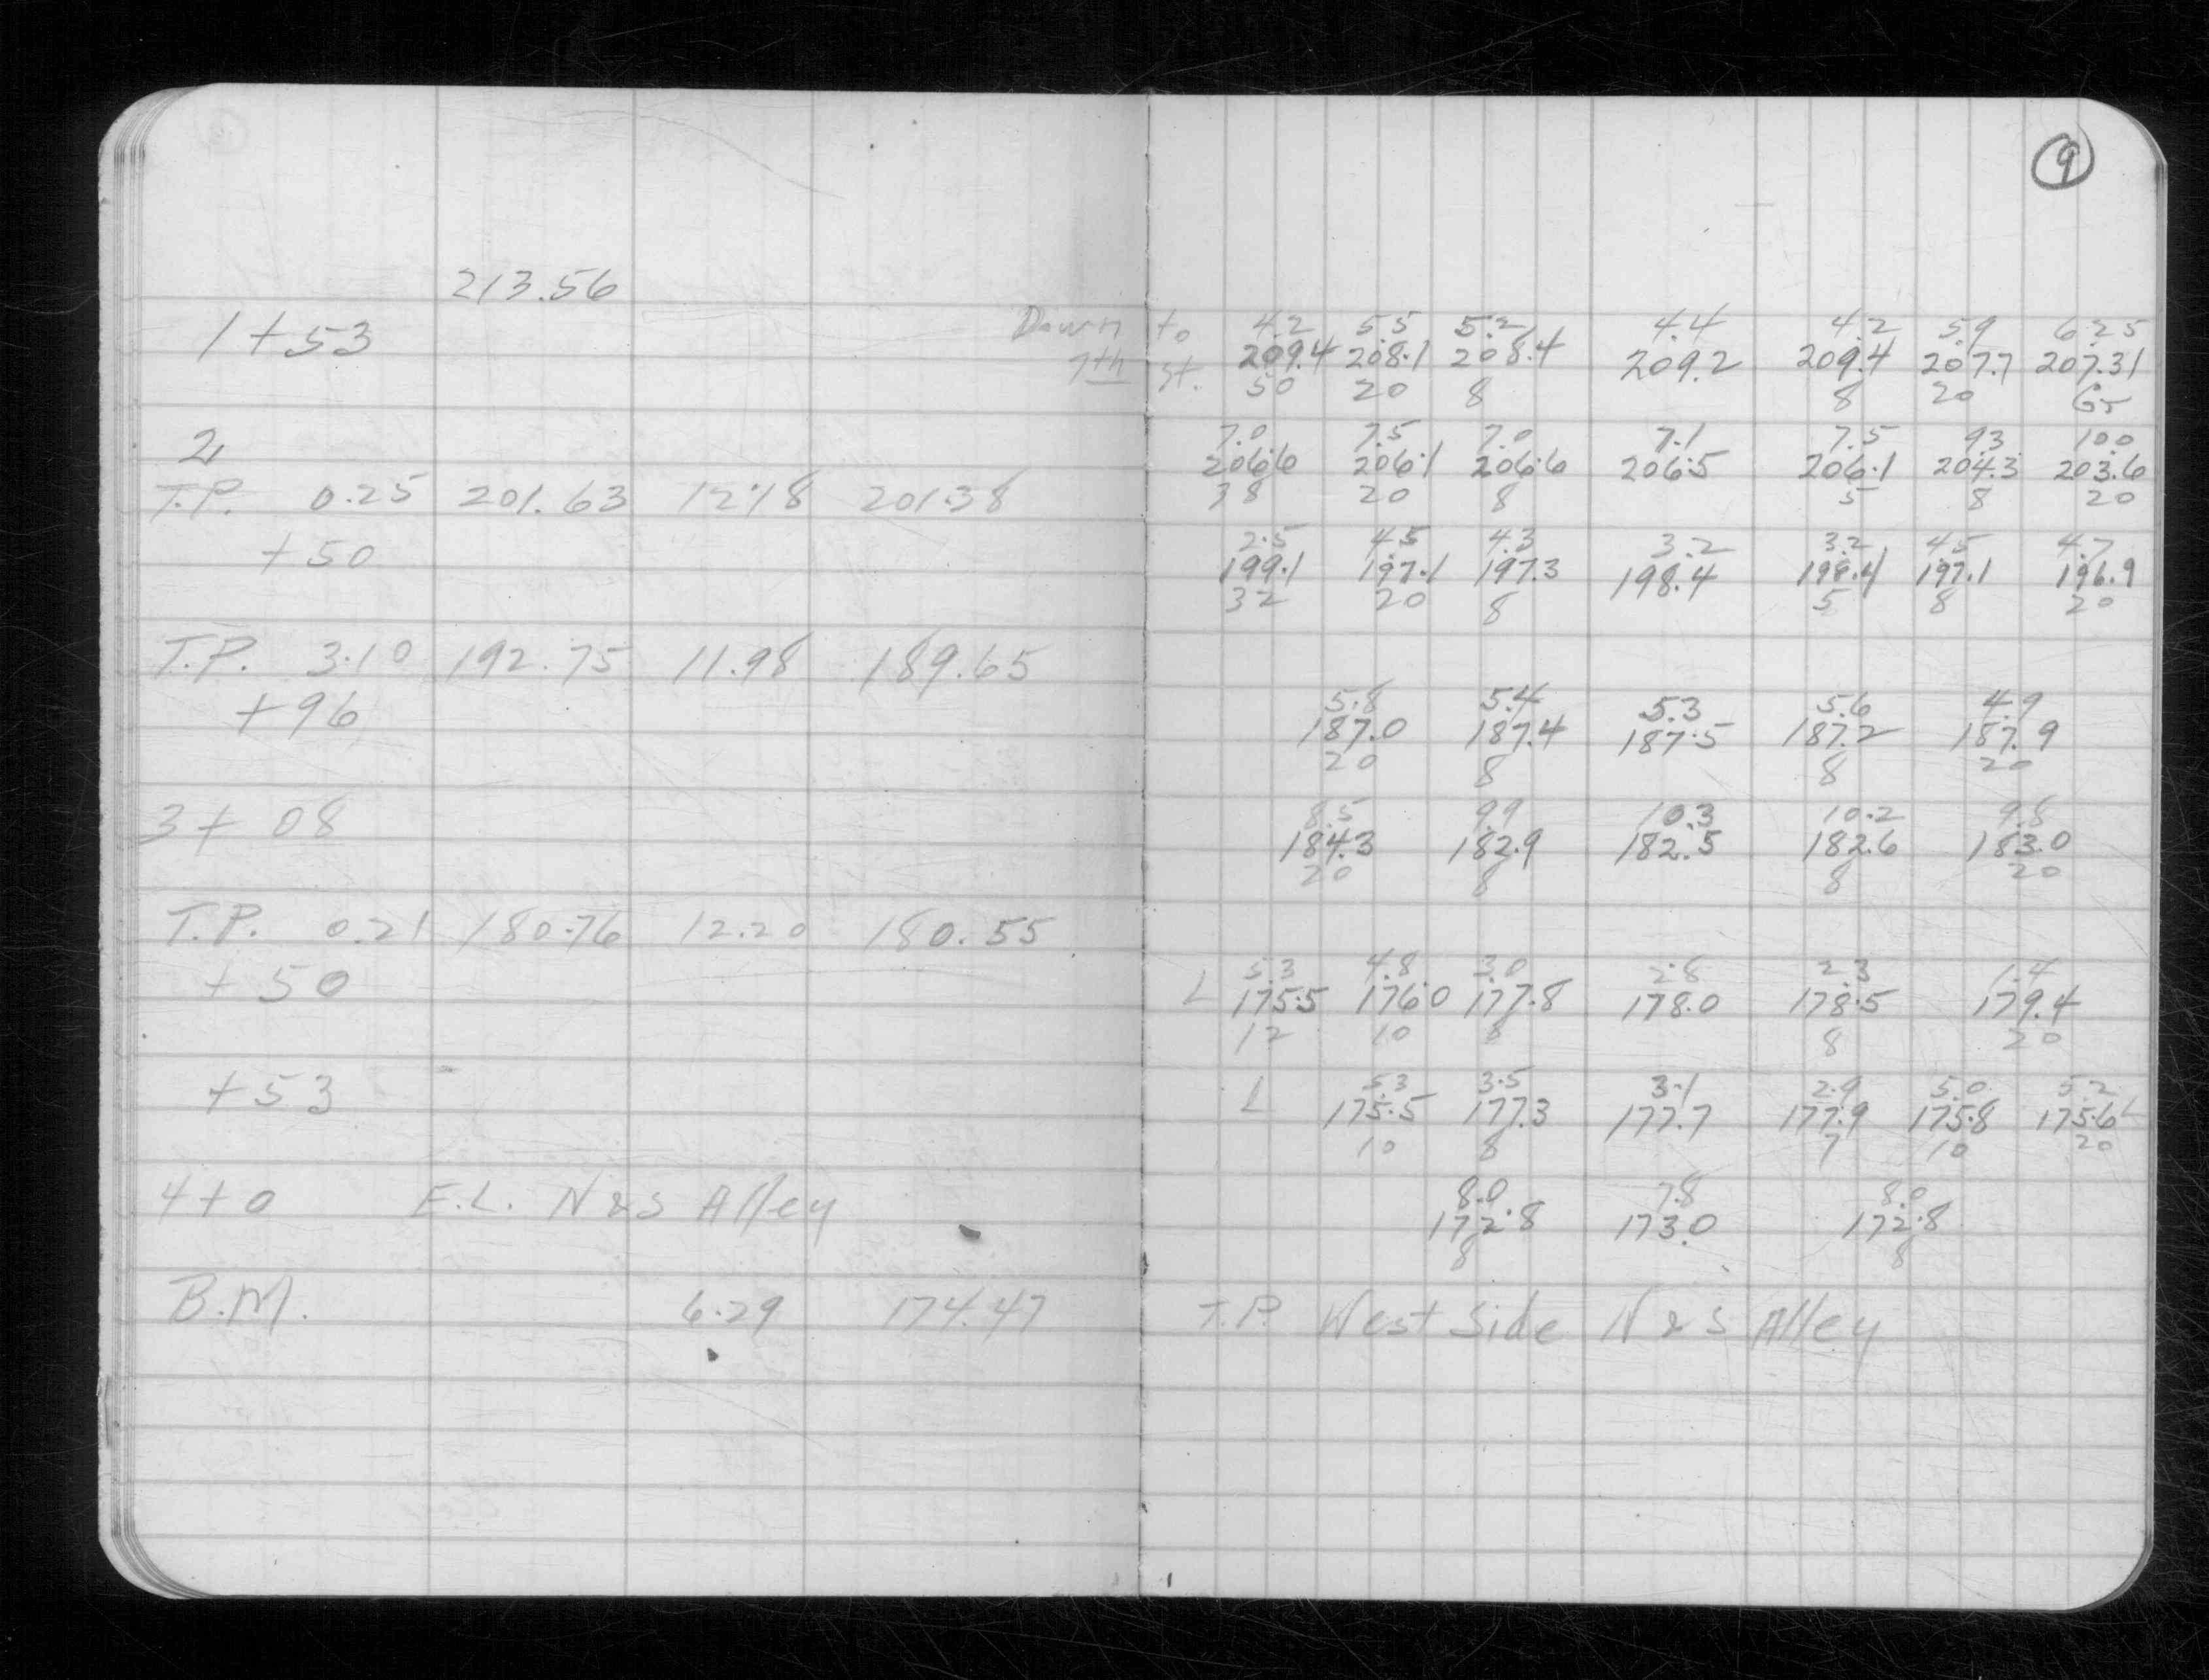 9
213.56
1+53 Down to 4.2 5.5 5.2 4.4 4.2 5.9 6.25
7th St. 209.4 208.1 208.4 209.2 209.4 207.7 207.31
50 20 8 8 20 65
2 7.0 7.5 7.0 7.1 7.5 9.3 10.0
206.6 206.1 206.6 206.5 206.1 204.3 203.6
T.P. 0.25 201.63 12.18 201.38 38 20 8 5 8 20
+50 2.5 4.5 4.3 3.2 3.2 4.5 4.7
199.1 197.1 197.3 198.4 198.4 197.1 196.9
32 20 8 5 8 20
T.P. 3.10 192.75 11.98 189.65
+96 5.8 5.4 5.3 5.6 4.9
187.0 187.4 187.5 187.2 187.9
20 8 8 20
3+08 8.5 9.9 10.3 10.2 9.8
184.3 182.9 182.5 182.6 183.0
20 8 8 20
T.P. 0.21 180.76 12.20 180.55
+50 5.3 4.8 3.0 2.8 2.3 1.4
L 175.5 176.0 177.8 178.0 178.5 179.4
12 10 8 8 20
+53 5.3 3.5 3.1 2.9 5.0 5.2
L 175.5 177.3 177.7 177.9 175.8 175.6 L
10 8 7 10 20
4+0 E.L. N&S Alley 8.0 7.8 8.0
172.8 173.0 172.8
8 8
B.M. 6.29 174.47 T.P. West Side N & S Alley